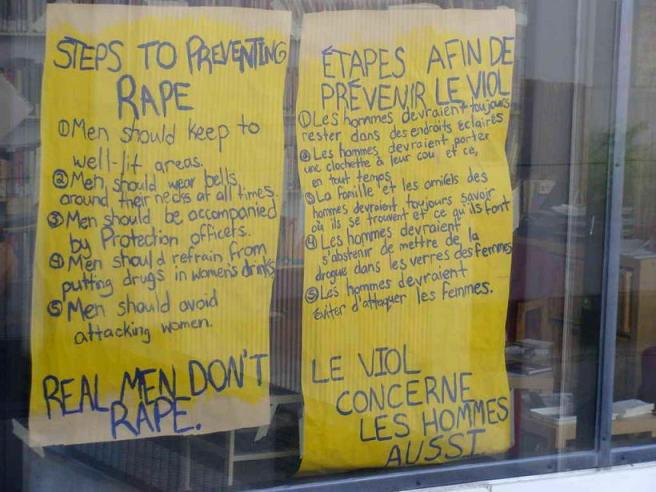 STEPS TO PREVENTING
RAPE
①Men should keep to
well-lit areas.
②Men should wear bells
around their necks at all times.
③Men should be accompanied
by Protection officers.
④Men should refrain from
putting drugs in women's drinks
⑤Men should avoid
attacking women.
REAL MEN DON'T
RAPE.
ÉTAPES AFIN DE
PRÉVENIR LE VIOL
①Les hommes devraient toujours
rester dans des endroits éclairés
②Les hommes devraient porter
une clochette à leur cou et ce,
en tout temps
③La famille et les amiEs des
hommes devraient toujours savoir
où ils se trouvent et ce qu'ils font
④Les hommes devraient
s'abstenir de mettre de la
drogue dans les verres des femmes
⑤Les hommes devraient
éviter d'attaquer les femmes.
LE VIOL
CONCERNE
LES HOMMES
AUSSI